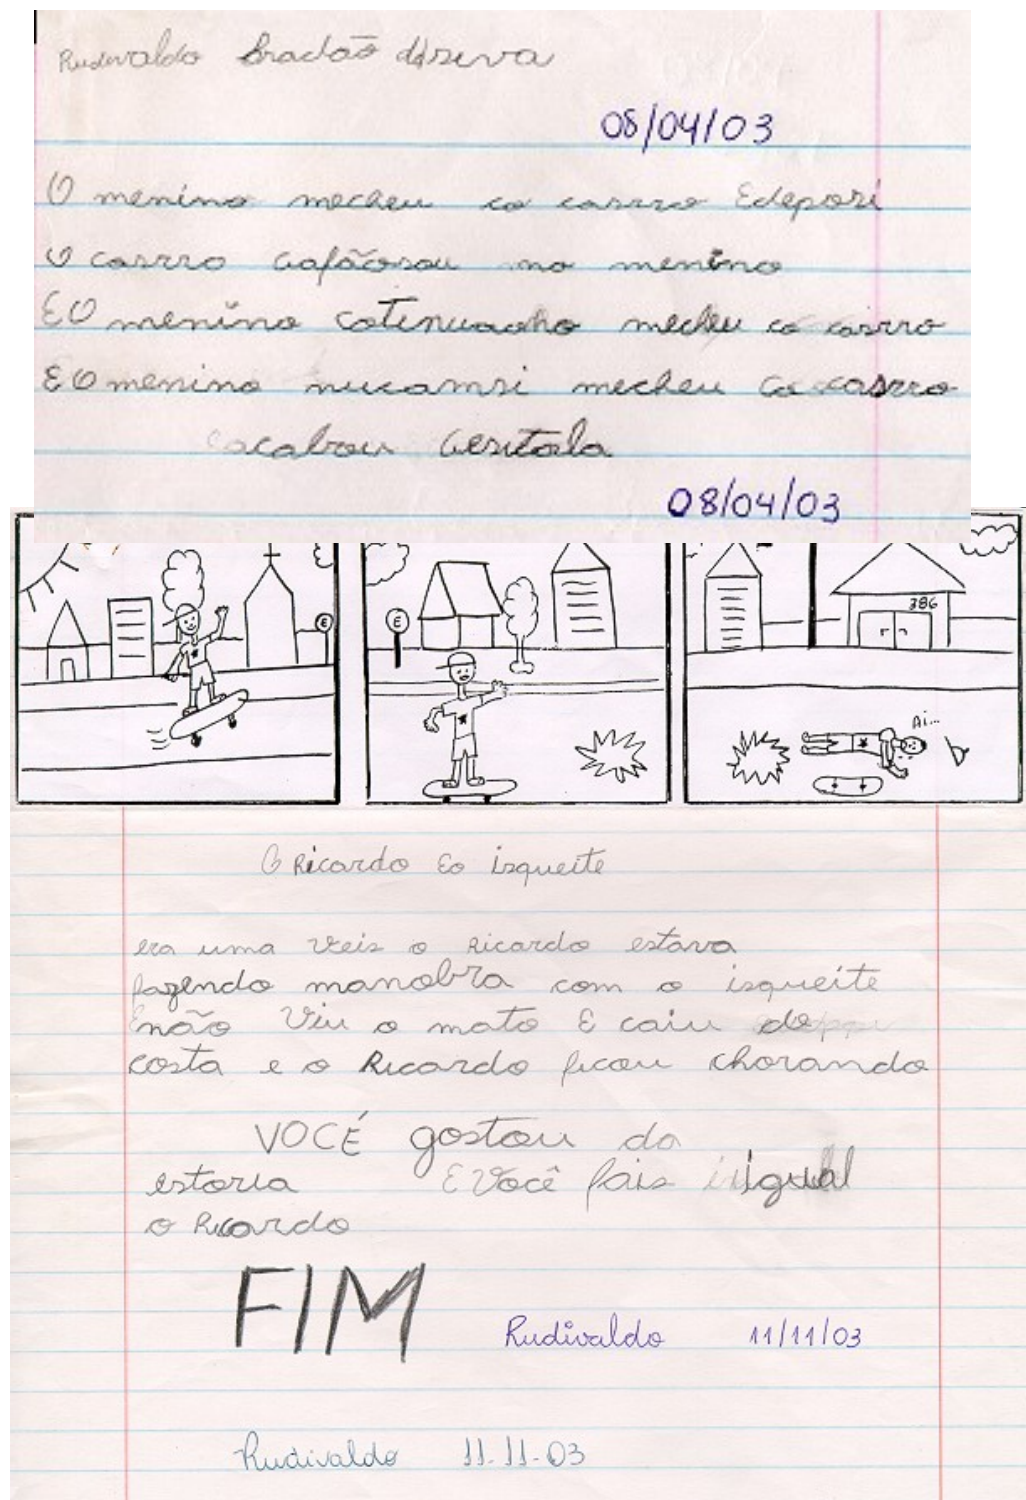 Rudivaldo Bradão dasilva
08/04/03
O menino mecheu co carrro Edepori
O carrro no menino
EO menino mecheu co carrro
EO menino nucamsi mecheu co carrro
acabou
08/04/03
E
E
386
Ai...
O Ricardo Eo isqueite
era uma veis o Ricardo estava
fazendo manobra com o isqueite
Enão Viu o mato E caiu de
costa e o Ricardo ficou chorando
VOCÉ gostou da
estoria E Você fais igual
o Ricardo
FIM
Rudivaldo 11/11/03
Rudivaldo 11-11-03